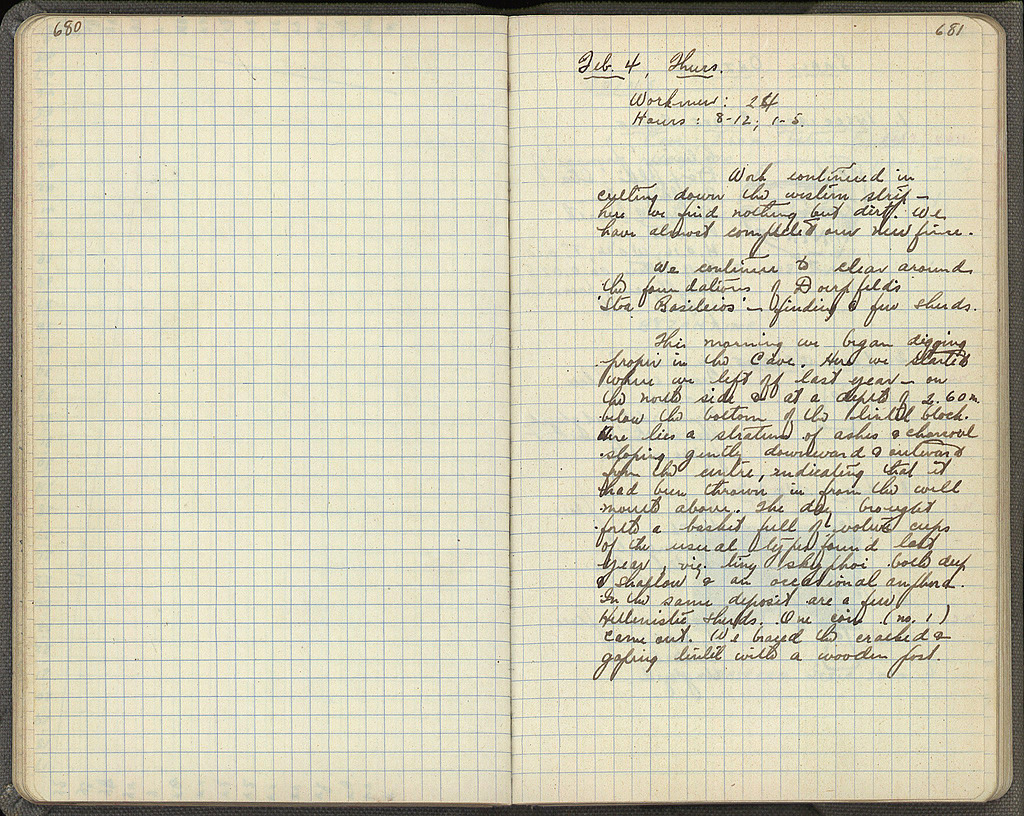 680
681
Feb. 4, Thurs.
Workmen: 24
Hours: 8-12; 1-5.
Work continued in
cutting down the western strip –
here we find nothing but dirt. We
have almost completed our new fence.
We continue to clear around
the foundations of Doerpfeld's
'Stoa Basileios' – finding a few sherds.
This morning we began digging
proper in the Cave. Here we started
where we left off last year – on
the north side & at a depth of 2.60 m.
below the bottom of the lintel block.
Here lies a stratum of ashes & charcoal
sloping gently downward & outward
from the centre, indicating that it
had been thrown in from the well
mouth above. The day brought
forth a basket full of votive cups
of the usual types found last
year, viz. tiny skyphoi both deep
& shallow & an occasional amphora.
In the same deposit are a few
Hellenistic sherds. One coin (no. 1)
came out. We braced the cracked &
gaping lintel with a wooden post.